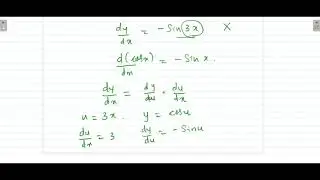 dy/dx = -Sin(3x) X
d(cosx)/dx = -Sin x.
dy/dx = dy/du . du/dx
u = 3x y = cosu
du/dx = 3 dy/du = -Sinu